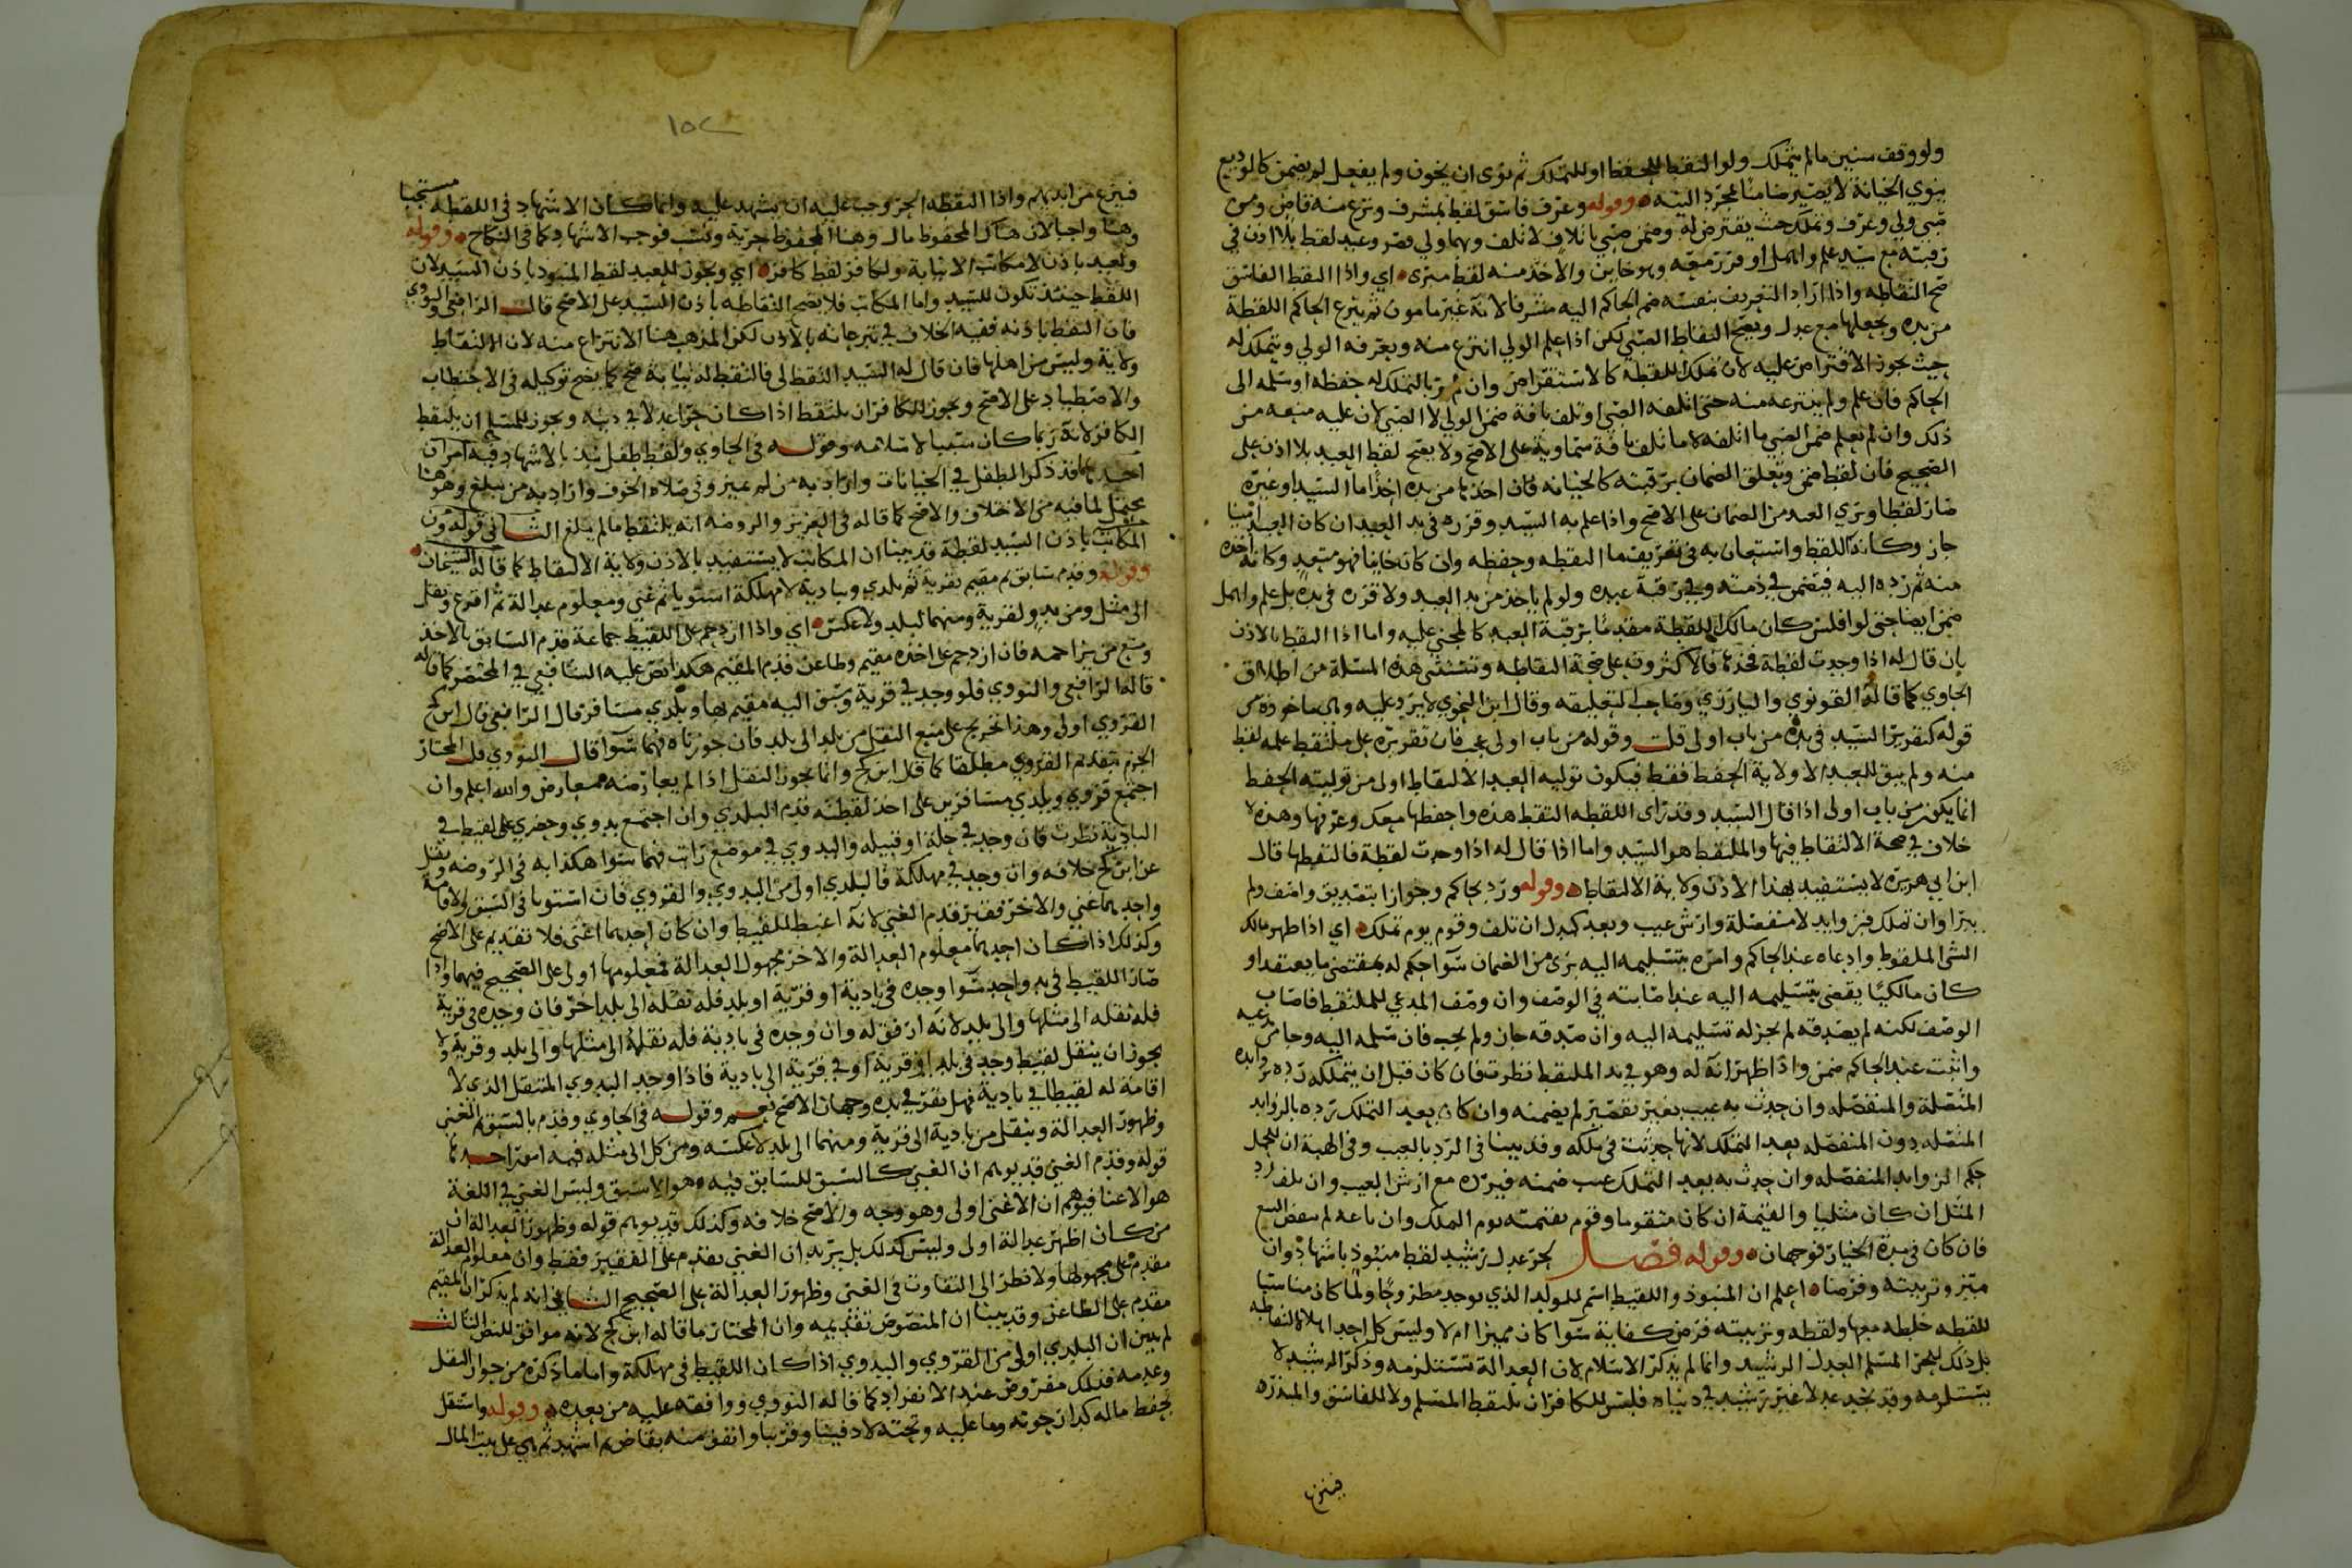 ولو وقف سنين ما لم يتملك ولو التقط للحفظ او للتملك ثم نوى ان يخون ولم يفعل لم يضمن كالوديع
ينوي الخيانة لا يصير ضامنا بمجرد النية وقوله وعرف فاسق لقط بمشرف ونزع منه قاض ومن
صبي ولي وعرف وتملك حيث يقترض له وضمن صبي باتلاف لا تلف وبهما ولي قصر وعبد لقط بلا اذن في
رقبته مع سيد علم واهمل او قرر معه وهو خاين والاخذ منه لقط مبرى اي واذا التقط الفاسق
صح التقاطه واذا اراد التعريف بنفسه ضم الحاكم اليه مشرفا لانه غير مامون ثم ينزع الحاكم اللقطة
من يده ويجعلها مع عدل ويصح التقاط الصبي لكن اذا علم الولي انتزع منه ويعرفه الولي ويتملك له
حيث يجوز الاقتراض عليه لان تملك اللقطة كالاستقراض وان لم ير بالتملك له حفظه او سلمه الى
الحاكم فان علم ولم ينتزعه منه حتى اتلفه الصبي او تلف بافة ضمن الولي لا الصبي لان عليه منعه من
ذلك وان لم يعلم ضمن الصبي ما اتلفه لا ما تلف بافة سماوية على الاصح ولا يصح لقط العبد بلا اذن على
الصحيح فان لقط ضمن وتعلق الضمان برقبته كالجنيانه فان اخذها من يده اخذ اما السيد او غيره
صار لقطا وبري العبد من الضمان على الاصح واذا علم به السيد وقرره في يد العبد ان كان العبد امينا
جاز وكان اللقط واستعان به في تعريف ما التقطه وحفظه وان كان خاينا فهو متعد وكانه اخذه
منه ثم رده اليه فيضمن في ذمته وفي رقبة عبده ولو لم ياخذ من يد العبد ولا قرره في يده بل علم واهمل
ضمن ايضا حتى لو افلس كان مالك اللقطة مقدما برقبة العبد كالمجني عليه واما اذا التقط بالاذن
بان قال له اذا وجدت لقطة فخذها فالاكثرون على صحة التقاطه وتستثنى هذه المسئلة من اطلاق
الحاوي كما قاله القونوي والبارزي وصاحب التعليقه وقال ابن النحوي لا يرد عليه وهي ماخوذة من
قوله كتقرير السيد في يده من باب اولى قلت وقوله من باب اولى عجب فان تقريره على ملتقط علمه لقط
منه ولم يبق للعبد الا ولاية الحفظ فقط فيكون توليه العبد الالتقاط اولى من توليته الحفظ
انما يكون من باب اولى اذا قال السيد وقد راى اللقطه التقط هذه واحفظها معك وعرفها وهذه لا
خلاف في صحة الالتقاط فيها والملتقط هو السيد واما اذا قال له اذا وجدت لقطة فالتقطها قال
ابن ابي هريره لا يستفيد بهذا الاذن ولاية الالتقاط وقوله ورد بحاكم وجوازا بتصديق واصف ولم
يبرا وان تملك فبزوايد لا منفصلة وارش عيب وبعد كبدل ان تلف وقوم يوم تملك اي اذا ظهر مالك
الشي الملقوط وادعاه عند الحاكم وامره بتسليمه اليه برى من الضمان سوا حكم له بمقتضى ما يعتقد او
كان مالكيا يقضى بتسليمه اليه عند اصابته في الوصف وان وصف المدعي للملتقط فاصاب
الوصف لكنه لم يصدقه لم يجز له تسليمه اليه وان صدقه جاز ولم يجب فان سلمه اليه وجا من يدعيه
واثبت عند الحاكم ضمن واذا ظهر انه له وهو في يد الملتقط نظرت فان كان قبل ان يتملكه رده بزوايده
المتصلة والمنفصله وان حدث به عيب بغير تقصير لم يضمنه وان كان بعد التملك رده بالزوايد
المتصله دون المنفصله بعد التملك لانها حدثت في ملكه وقد بينا في الرد بالعيب وفي الهبة ان للحمل
حكم الزوايد المنفصله وان حدث به بعد التملك عيب ضمنه فيرده مع ارش العيب وان تلف رد
المثل ان كان مثليا والقيمة ان كان متقوما وقوم بقيمته يوم التملك وان باعه لم ينقض البيع
فان كان في مدة الخيار فوجهان وقوله فصل لحر عدل رشيد لقط منبوذ باشهاد وان
ميز وتربيته وفرضا اعلم ان المنبوذ واللقيط اسم للمولد الذي يوجد مطروحا ولما كان مناسبا
للقطه خلطه معها ولقطه وتربيته فرض كفاية سوا كان مميزا ام لا وليس كل احد اهلا لالتقاطه
بل ذلك للحر المسلم العدل الرشيد وانما لم يذكر الاسلام لان العدالة تستلزمه وذكر الرشيد لا
يستلزمه وقد يجد عدلا غير رشيد في دنياه فليس للكافر ان يلتقط المسلم ولا للفاسق والمبذر
فينزع
١٥٢
فينزع من ايديهم واذا التقطه الحر وجب عليه ان يشهد عليه وانما كان الاشهاد في اللقطه مستحبا
وهنا واجبا لان هناك المحفوظ مال وهنا المحفوظ حرية ونسب فوجب الاشهاد كما في النكاح وقوله
ولعبد باذن لا مكاتب الا نيابة ولكافر لقط كافر اي ويجوز للعبد لقط المنبوذ باذن السيد لان
اللقط حينئذ تكون للسيد واما المكاتب فلا يصح التقاطه باذن السيد على الاصح قال الرافعي والنووي
فان التقط باذنه ففيه الخلاف في تبرعاته بالاذن لكن المذهب هنا الانتزاع منه لان الالتقاط
ولاية وليس من اهلها فان قال له السيد التقط لي فالتقط له نيابة صح كما يصح توكيله في الاحتطاب
والاصطياد على الاصح ويجوز للكافر ان يلتقط اذا كان حرا عدلا في دينه ويجوز للمسلم ان يلتقط
الكافر لانه ربما كان سببا لاسلامه وقوله في الحاوي ولقط طفل نبذ بالاشهاد فيه امران
احدهما قد ذكر الطفل في الجنايات واراد به من لم يميز وفي صلاة الخوف واراد به من يبلغ وهو هنا
يحتمل لما فيه من الاختلاف والاصح كما قاله في العزيز والروضه انه يلتقط ما لم يبلغ الثاني قوله دون
المكاتب باذن السيد لقطة قد بينا ان المكاتب لا يستفيد بالاذن ولاية الالتقاط كما قاله الشيخان
وقوله وقدم سابق ثم مقيم بقرية ثم بلدي وببادية لا مهلكة استويا ثم غني ومعلوم عدالة ثم اقرع ونقل
الى مثل ومن بدو لقرية ومنهما لبلد ولا عكس اي واذا ازدحم على اللقيط جماعة قدم السابق بالاخذ
ومنع من يزاحمه فان ازدحم على اخذه مقيم وظاعن قدم المقيم هكذا نص عليه الشافعي في المختصر كما قاله
قاله الرافعي والنووي فلو وجد في قرية وسبق اليه مقيم بها وبلدي مسافر قال الرافعي قال ابن كج
القروي اولى وهذا تخريج على منع النقل من بلد الى بلد فان جوزناه فهما سوا قال النووي قلت المختار
الجزم بتقديم القروي مطلقا كما قال ابن كج وانما يجوز النقل اذا لم يعارضه معارض والله اعلم وان
اجتمع قروي وبلدي مسافرين على اخذ لقطته قدم البلدي وان اجتمع بدوي وحضري على لقيط في
البادية نظرت فان وجد في حلة او قبيله والبدوي في موضع راتب فهما سوا هكذا به في الروضه ونقل
عن ابن كج خلافه وان وجد في مهلكة فالبلدي اولى من البدوي والقروي فان استويا في السبق والاقامة
واحدهما غني والاخر فقير قدم الغني لانه اغبط للقيط وان كان احدهما اغنى فلا تقديم على الاصح
وكذلك اذا كان احدهما معلوم العدالة والاخر مجهول العدالة فمعلومها اولى على الصحيح فيهما واذا
صار اللقيط في يد واحد سوا وجده في بادية او قرية او بلد فله نقله الى بلد اخر فان وجده في قرية
فله نقله الى مثلها والى بلد لانه ارفق له وان وجده في بادية فله نقله الى مثلها والى بلد وقرية ولا
يجوز ان ينقل لقيط وجد في بلد الى قرية او في قرية الى بادية فاذا وجد البدوي المتنقل الذي لا
اقامة له لقيطا في بادية فهل يقر في يده وجهان الاصح نعم وقوله في الحاوي وقدم بالسبق ثم الغنى
وظهور العدالة وينقل من بادية الى قرية ومنهما الى بلد لا عكسه ومن كل الى مثله فيه امور احدها
قوله وقدم الغني قد يوهم ان الغنى كالسبق للسابق فيه وهو الاسبق وليس الغني في اللغة
هو الاغنا فيوهم ان الاغنى اولى وهو وجه والاصح خلافه وكذلك قد يوهم قوله وظهور العدالة ان
من كان اظهر عدالة اولى وليس كذلك بل يريد ان الغني يقدم على الفقير فقط وان معلوم العدالة
مقدم على مجهولها ولا نظر الى التفاوت في الغنى وظهور العدالة على الصحيح الثاني انه لم يذكر ان المقيم
مقدم على الظاعن وقد بينا ان المنصوص تقديمه وان المختار ما قاله ابن كج لانه موافق للنص الثالث
لم يبين ان البلدي اولى من القروي والبدوي اذا كان اللقيط في مهلكة واما ما ذكره من جواز النقل
وعدمه فذلك مفروض عند الانفراد كما قاله النووي ووافقه عليه من بعده وقوله واستقل
بحفظ ماله كدار حوته وما عليه وتحته لا دفينا وقريبا وانفق منه بقاض ثم اشهد ثم هي على بيت المال